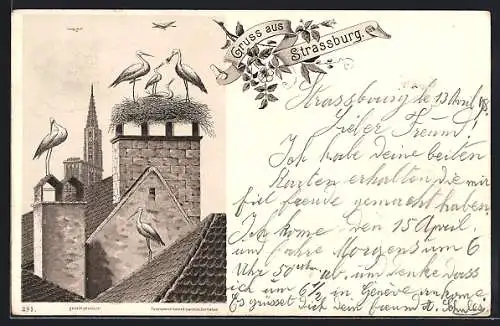 Gruss aus
Strassburg.
Strassbourg le 13 Avril 98.
Lieber Freund!
Ich habe deine beiten
Karten erhalten die mir
fiel freude gemacht haben
Ich kome den 15 April.
um fahre Morgens um 6
Uhr 50 ab, um denke dass
ich um 6½ in Geneve ankome.
Es grüsst dich dein freund
291.